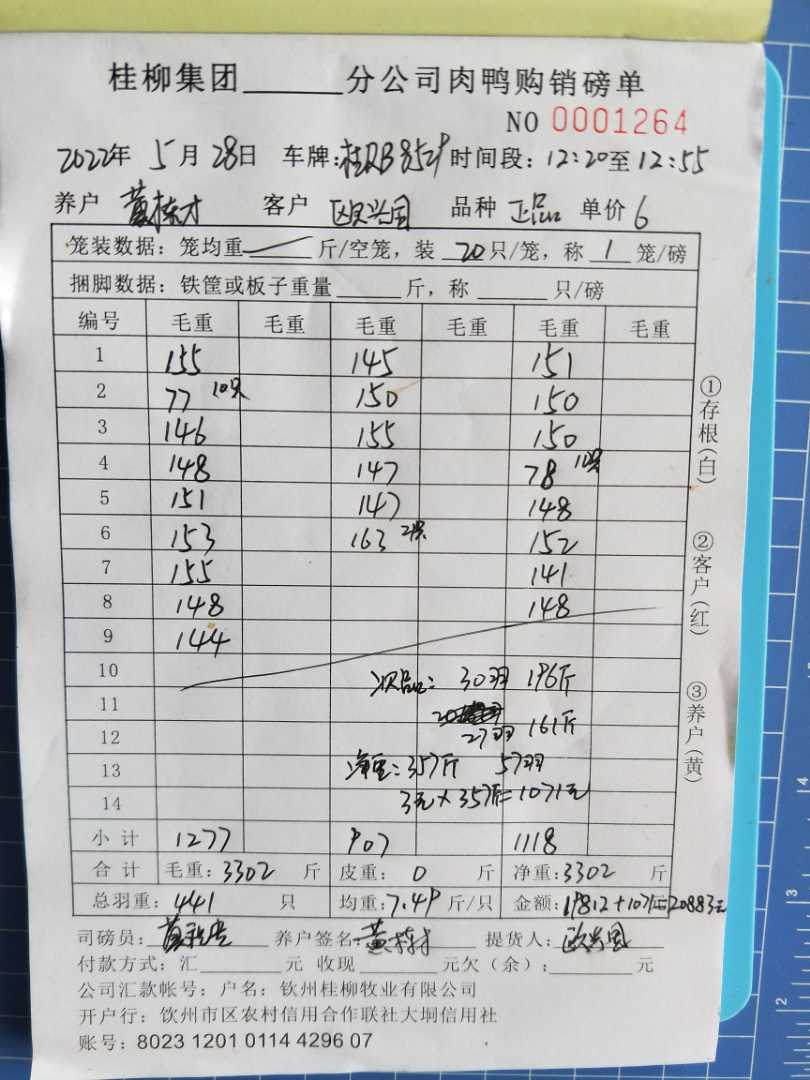 桂柳集团______分公司肉鸭购销磅单
NO 0001264
2022年 5月28日 车牌:桂 8529 时间段:12:20至12:55
养户 黄栋才 客户 欧兴国 品种 正品 单价 6
笼装数据:笼均重 斤/空笼,装 20 只/笼,称 1 笼/磅
捆脚数据:铁筐或板子重量 斤,称 只/磅
编号 毛重 毛重 毛重 毛重 毛重 毛重
1 155 145 151
2 77 10只 150 150
3 146 155 150
4 148 147 78 10只
5 151 147 148
6 153 163 152
7 155 141
8 148 148
9 144
10 次品: 30羽 196斤
11
12 27羽 161斤
13 净重:357斤 57羽
14 3元×357斤=1071元
小计 1277 907 1118
合计 毛重:3302 斤 皮重: 0 斤 净重:3302 斤
总羽重:441 只 均重:7.49 斤/只 金额:19812+1071=20883元
司磅员: 养户签名:黄栋才 提货人:欧兴国
付款方式:汇______元 收现______元欠(余):______元
公司汇款帐号:户名:钦州桂柳牧业有限公司
开户行:饮州市区农村信用合作联社大垌信用社
账号:8023 1201 0114 4296 07
①存根(白)
②客户(红)
③养户(黄)